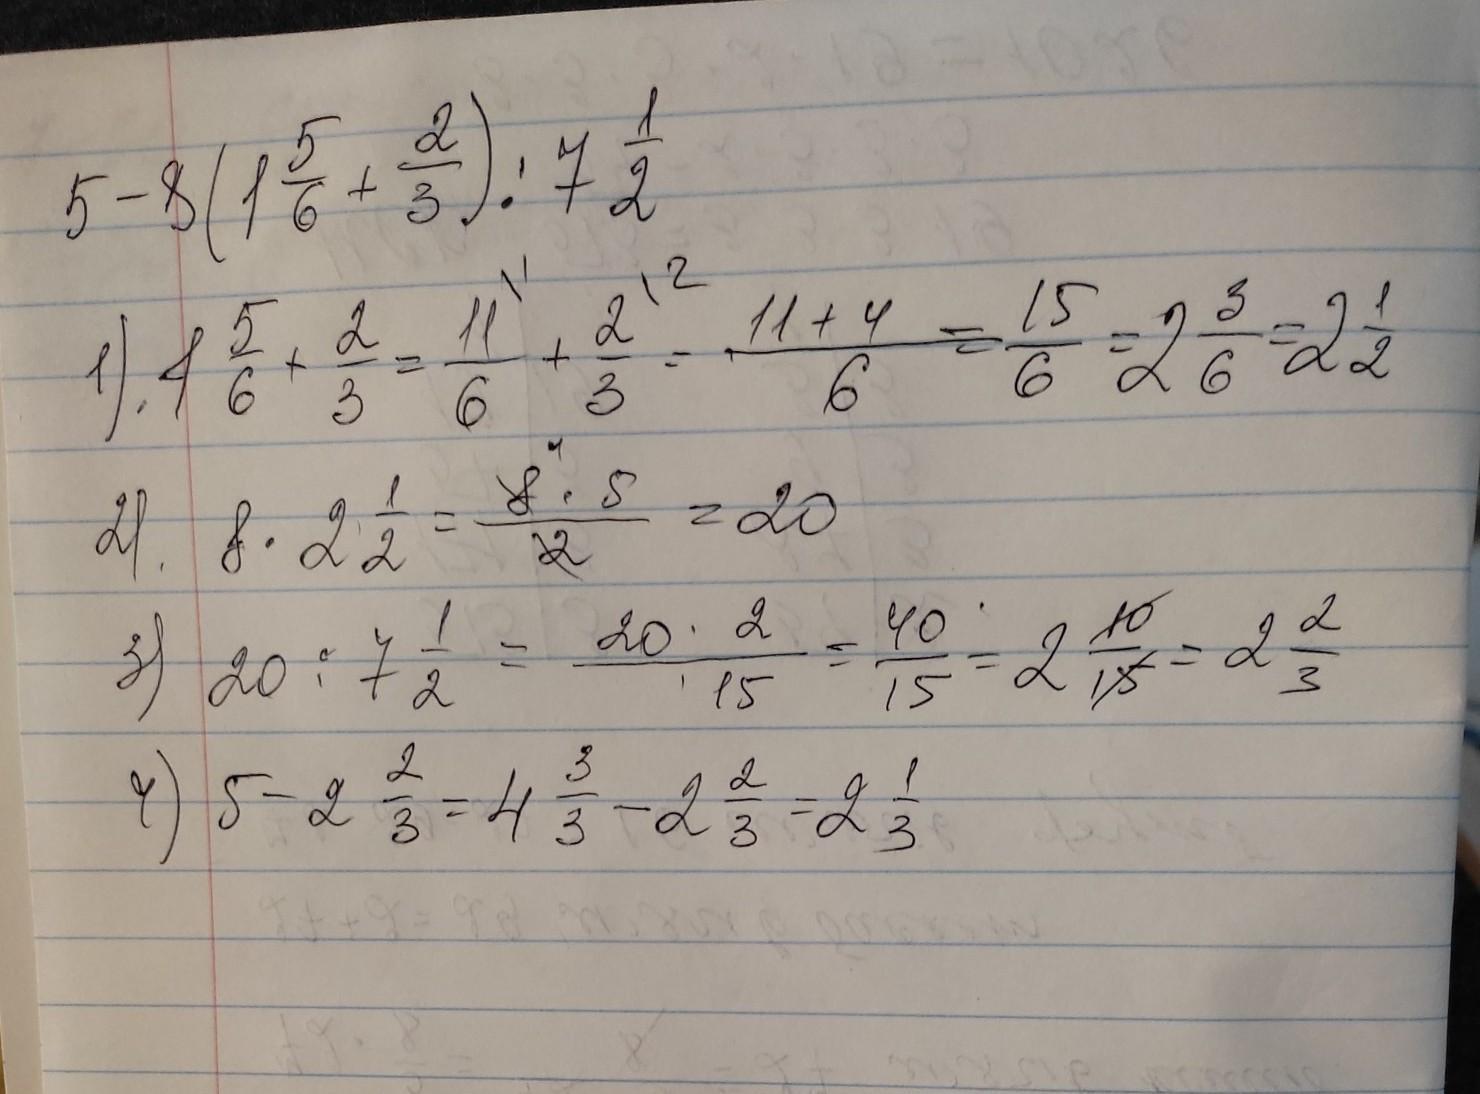 5 - 8 (1 5/6 + 2/3) : 7 1/2
1). 1 5/6 + 2/3 = 11/6 \1 + 2/3 \2 = 11+4/6 = 15/6 = 2 3/6 = 2 1/2
2). 8 · 2 1/2 = 8 4 · 5/2 = 20
3) 20 : 7 1/2 = 20 · 2/15 = 40/15 = 2 10/15 = 2 2/3
4) 5 - 2 2/3 = 4 3/3 - 2 2/3 = 2 1/3